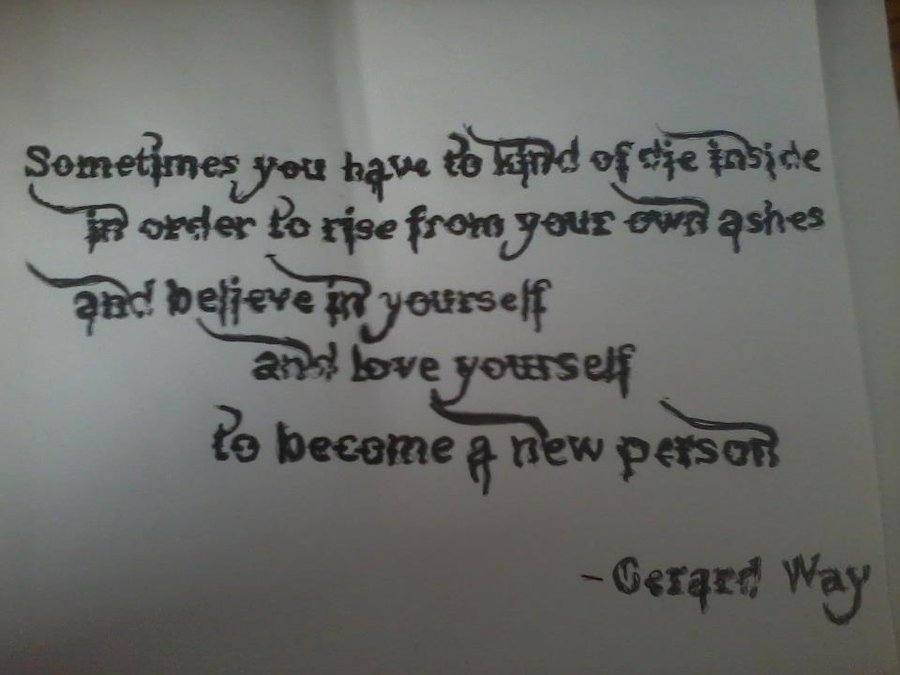 Sometimes you have to kind of die inside
in order to rise from your own ashes
and believe in yourself
and love yourself
to become a new person
-Gerard Way